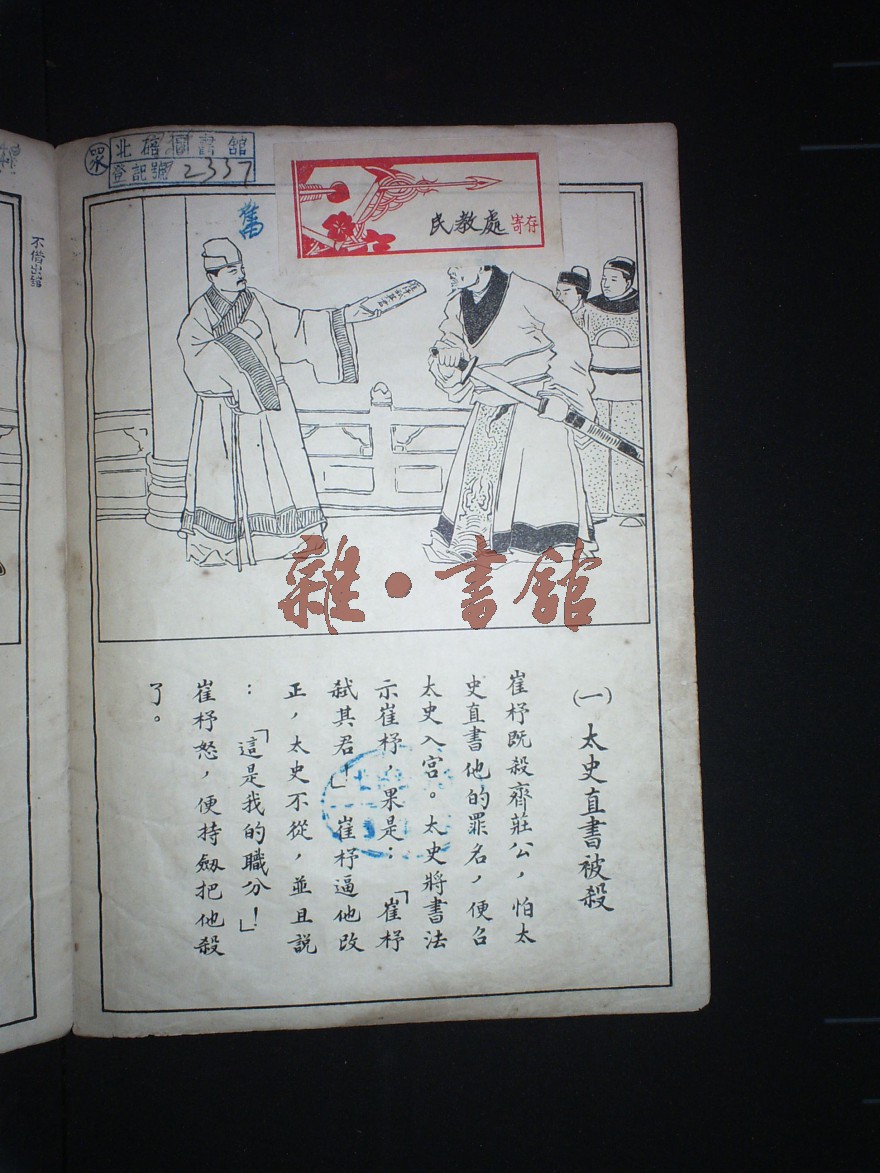 北碚圖書館
登記號 2337
民教處寄存
不借出館
雜·書館
(一) 太史直書被殺
崔杼既殺齊莊公，怕太
史直書他的罪名，便召
太史入宮。太史將書法
示崔杼，果是：「崔杼
弒其君！」崔杼逼他改
正，太史不從，並且説
：「這是我的職分！」
崔杼怒，便持劔把他殺
了。